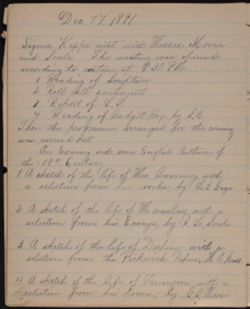 Dec 17, 1891
Sigma Kappa met with Misses Morse
and Soule. The meeting was opened
according to custom at 7.30 P.M.
1. Reading of Scripture
2. Roll call
3. Report of
4. Reading of Budget Box by
Then the programme arranged for the evening
was carried out
An Evening with some English Authors of
the 19th Century
1 A sketch of the life of Mrs Browning with
a selection from her works by
2 A sketch of the life of Macaulay with a
selection from his Essays by Soule
3 A sketch of the life of Dickens with a
selection from the Pickwick Papers,
4 A sketch of the life of Tennyson with a
selection from his Poems, by Morse